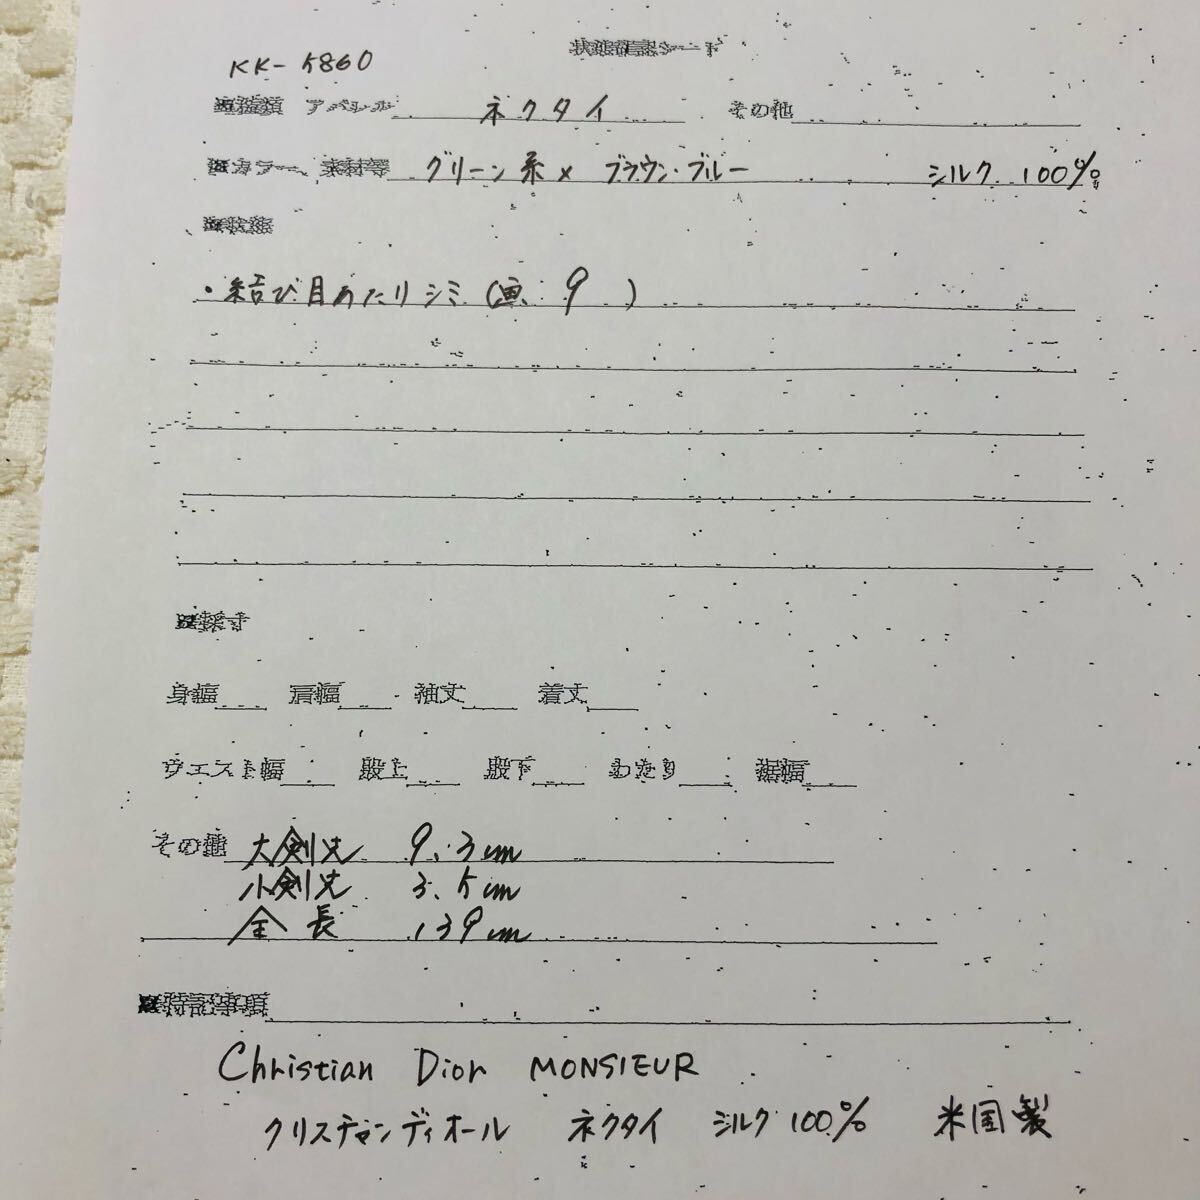 状態確認シート
KK-5860
■種類 アパレル ネクタイ その他
■カラー、素材等 グリーン系× ブラウン・ブルー シルク 100%
■状態
・結び目あたりシミ(画. 9 )
■採寸
身幅 肩幅 袖丈 着丈
ウエスト幅 股上 股下 わたり 裾幅
その他 大剣先 9.3cm
小剣先 3.5cm
全長 139cm
■特記事項
Christian Dior MONSIEUR
クリスチャンディオール ネクタイ シルク100% 米国製